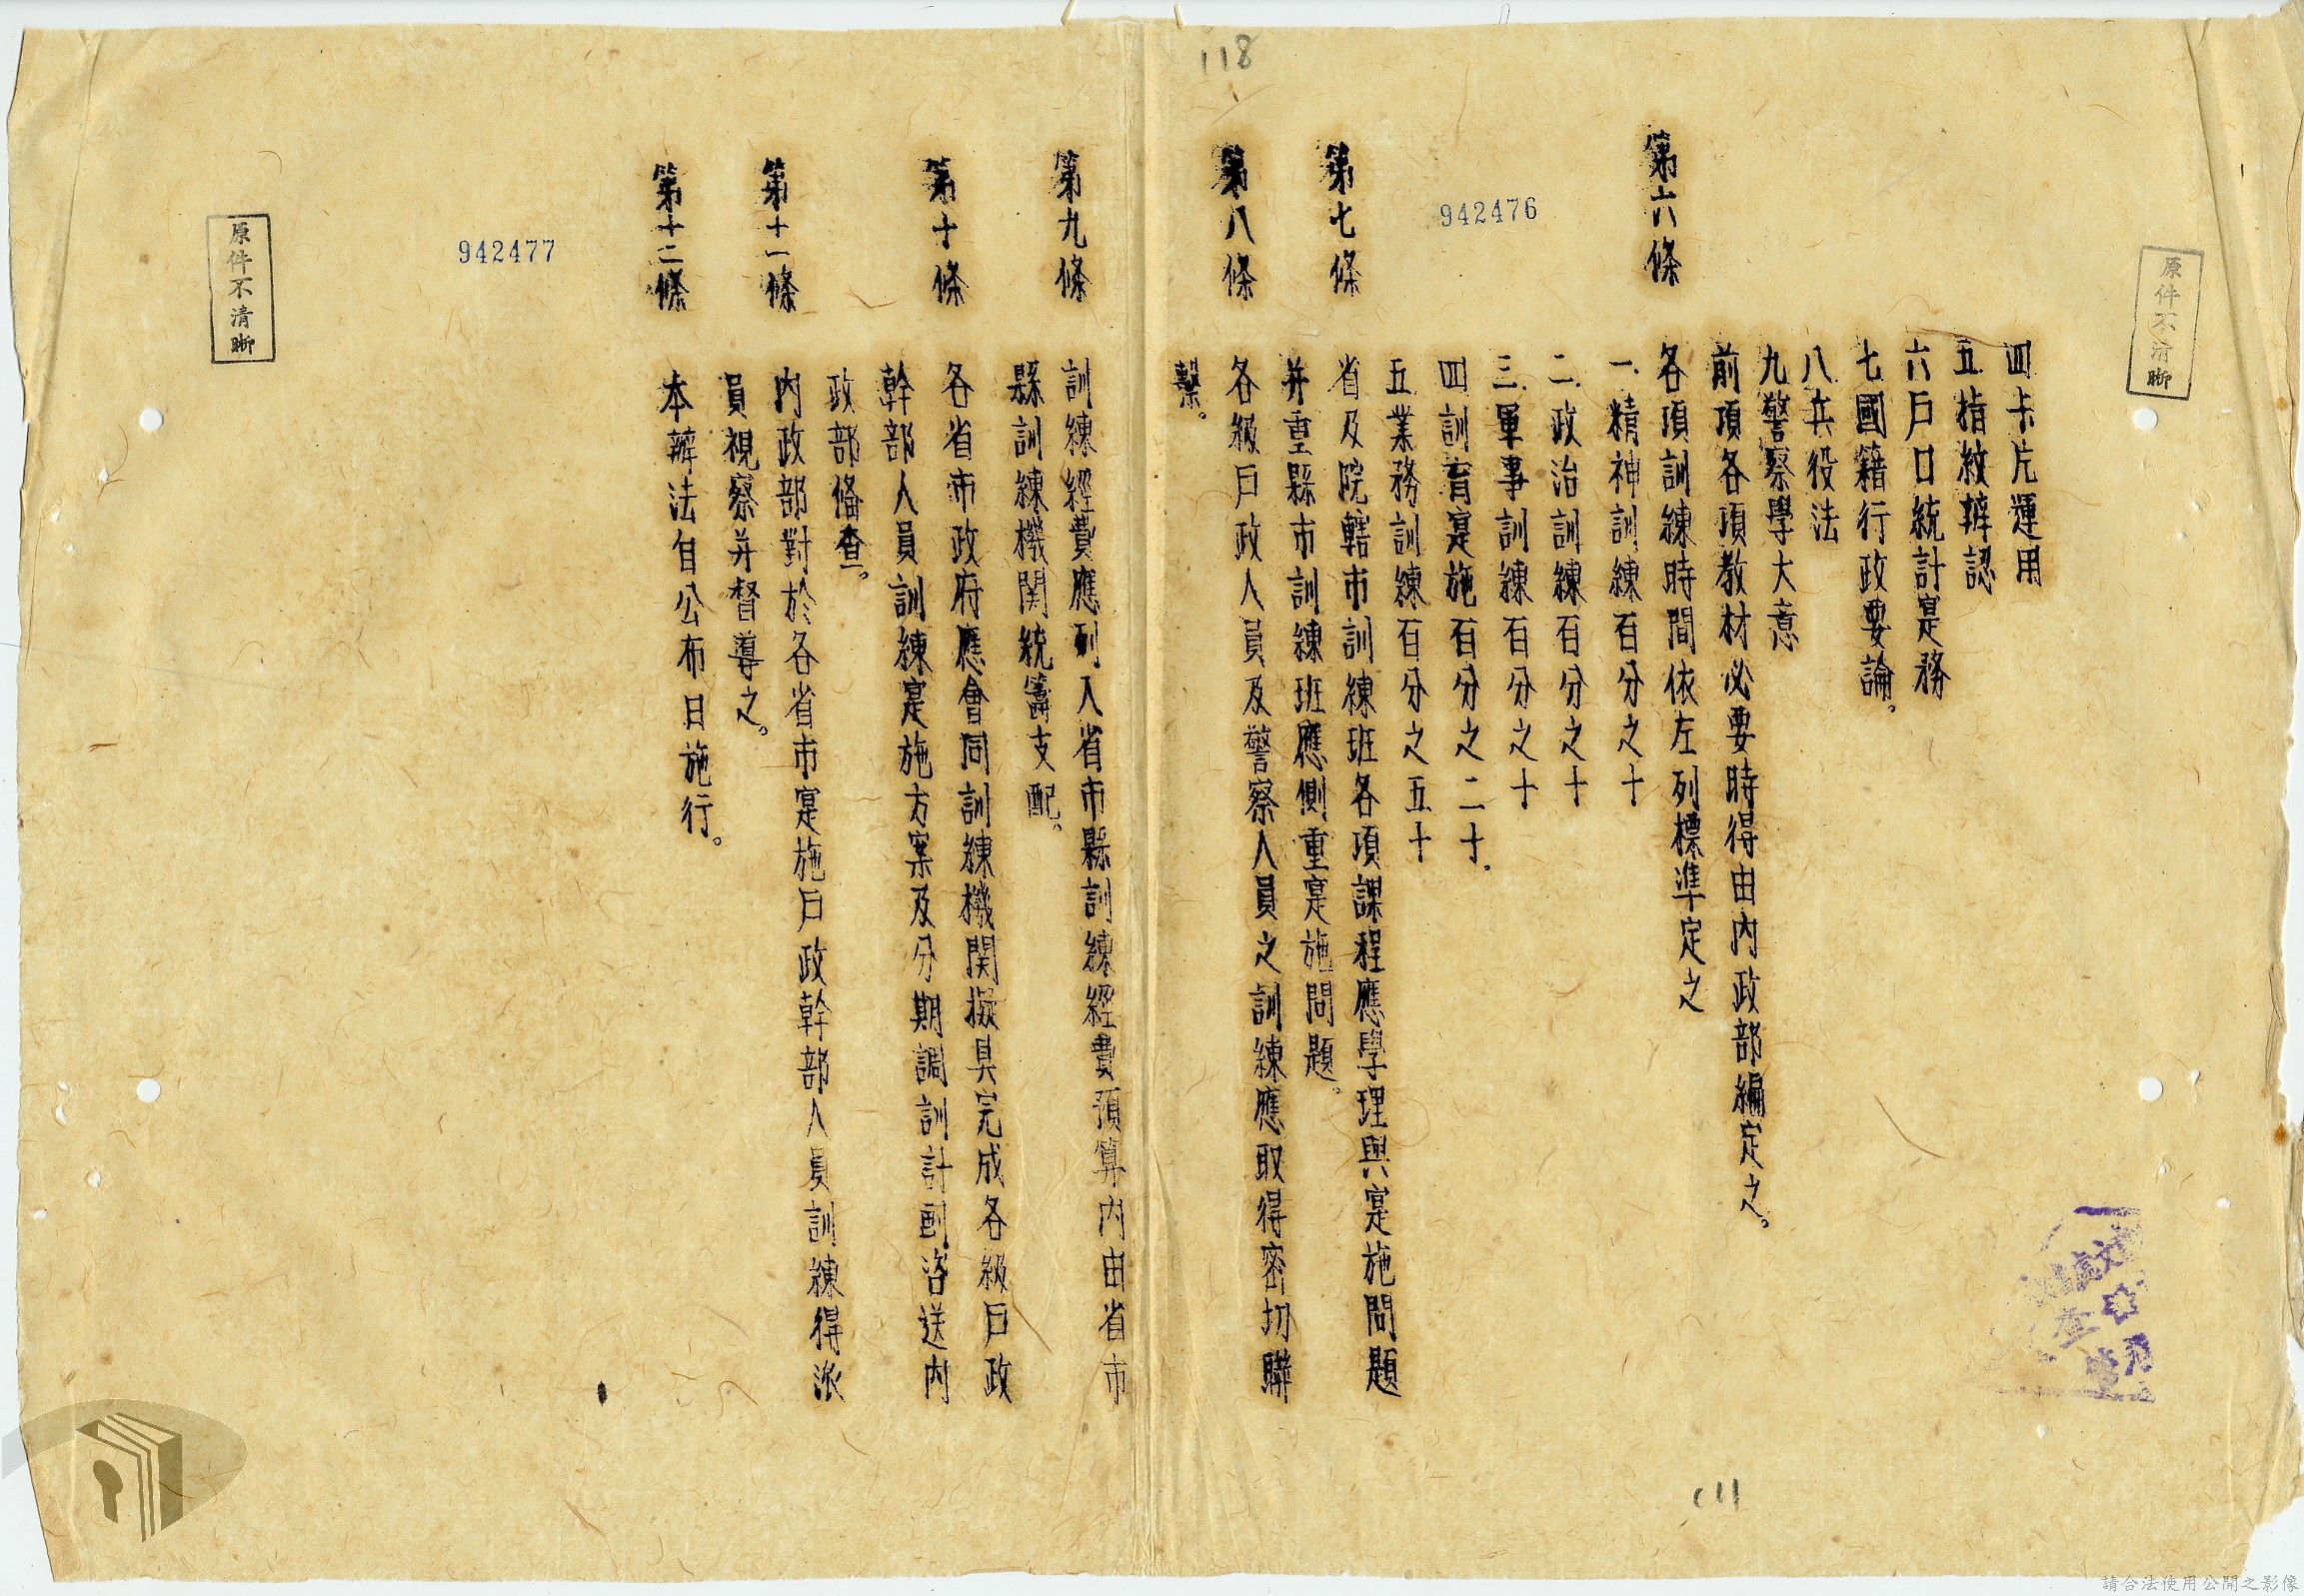 118
原件不清晰
942476
四卡片運用
五.指紋辨認
六戶口統計寔務
七國籍行政要論。
八.兵役法
九警察學大意
前項各項教材必要時得由內政部編定之。
第六條 各項訓練時間依左列標準定之
一.精神訓練百分之十
二.政治訓練百分之十
三.軍事訓練百分之十
四訓育寔施百分之二十.
五業務訓練百分之五十
第七條 省及院轄市訓練班各項課程應學理與寔施問題
并重縣市訓練班應側重寔施問題。
第八條 各級戶政人員及警察人員之訓練應取得密切聯
繫。
111
第九條 訓練經費應列入省市縣訓練經費預算內由省市
縣訓練機関統籌支配。
第十條 各省市政府應會同訓練機関擬具完成各級戶政
幹部人員訓練寔施方案及分期調訓計劃咨送內
政部俻查。
第十一條 內政部對於各省市寔施戶政幹部人員訓練得派
員視察并督導之。
第十二條 本辦法自公布日施行。
942477
原件不清晰
請合法使用公開之影像